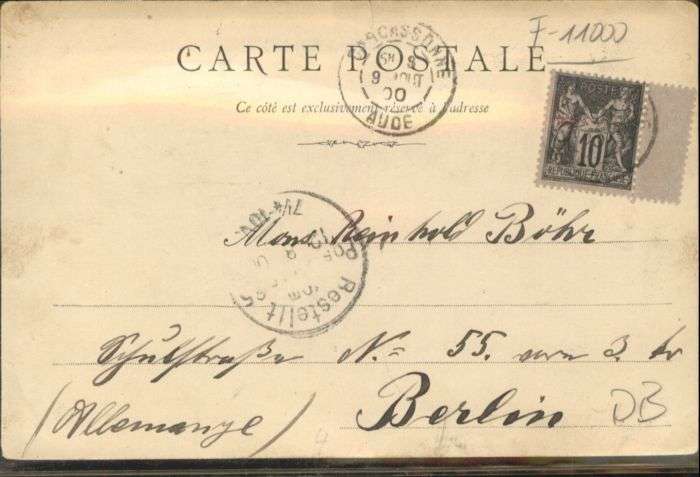 F-11000
CARTE POSTALE
Ce côté est exclusivement réservé à l'adresse
CARCASSONNE
9 AOUT
00
AUDE
POSTE
10
REPUBLIQUE FRANCAISE
Mons. Reinhold Böhr
Bestellt
Schulstraße N.= 55. vorn 3. tr
(Allemange) Berlin
DB